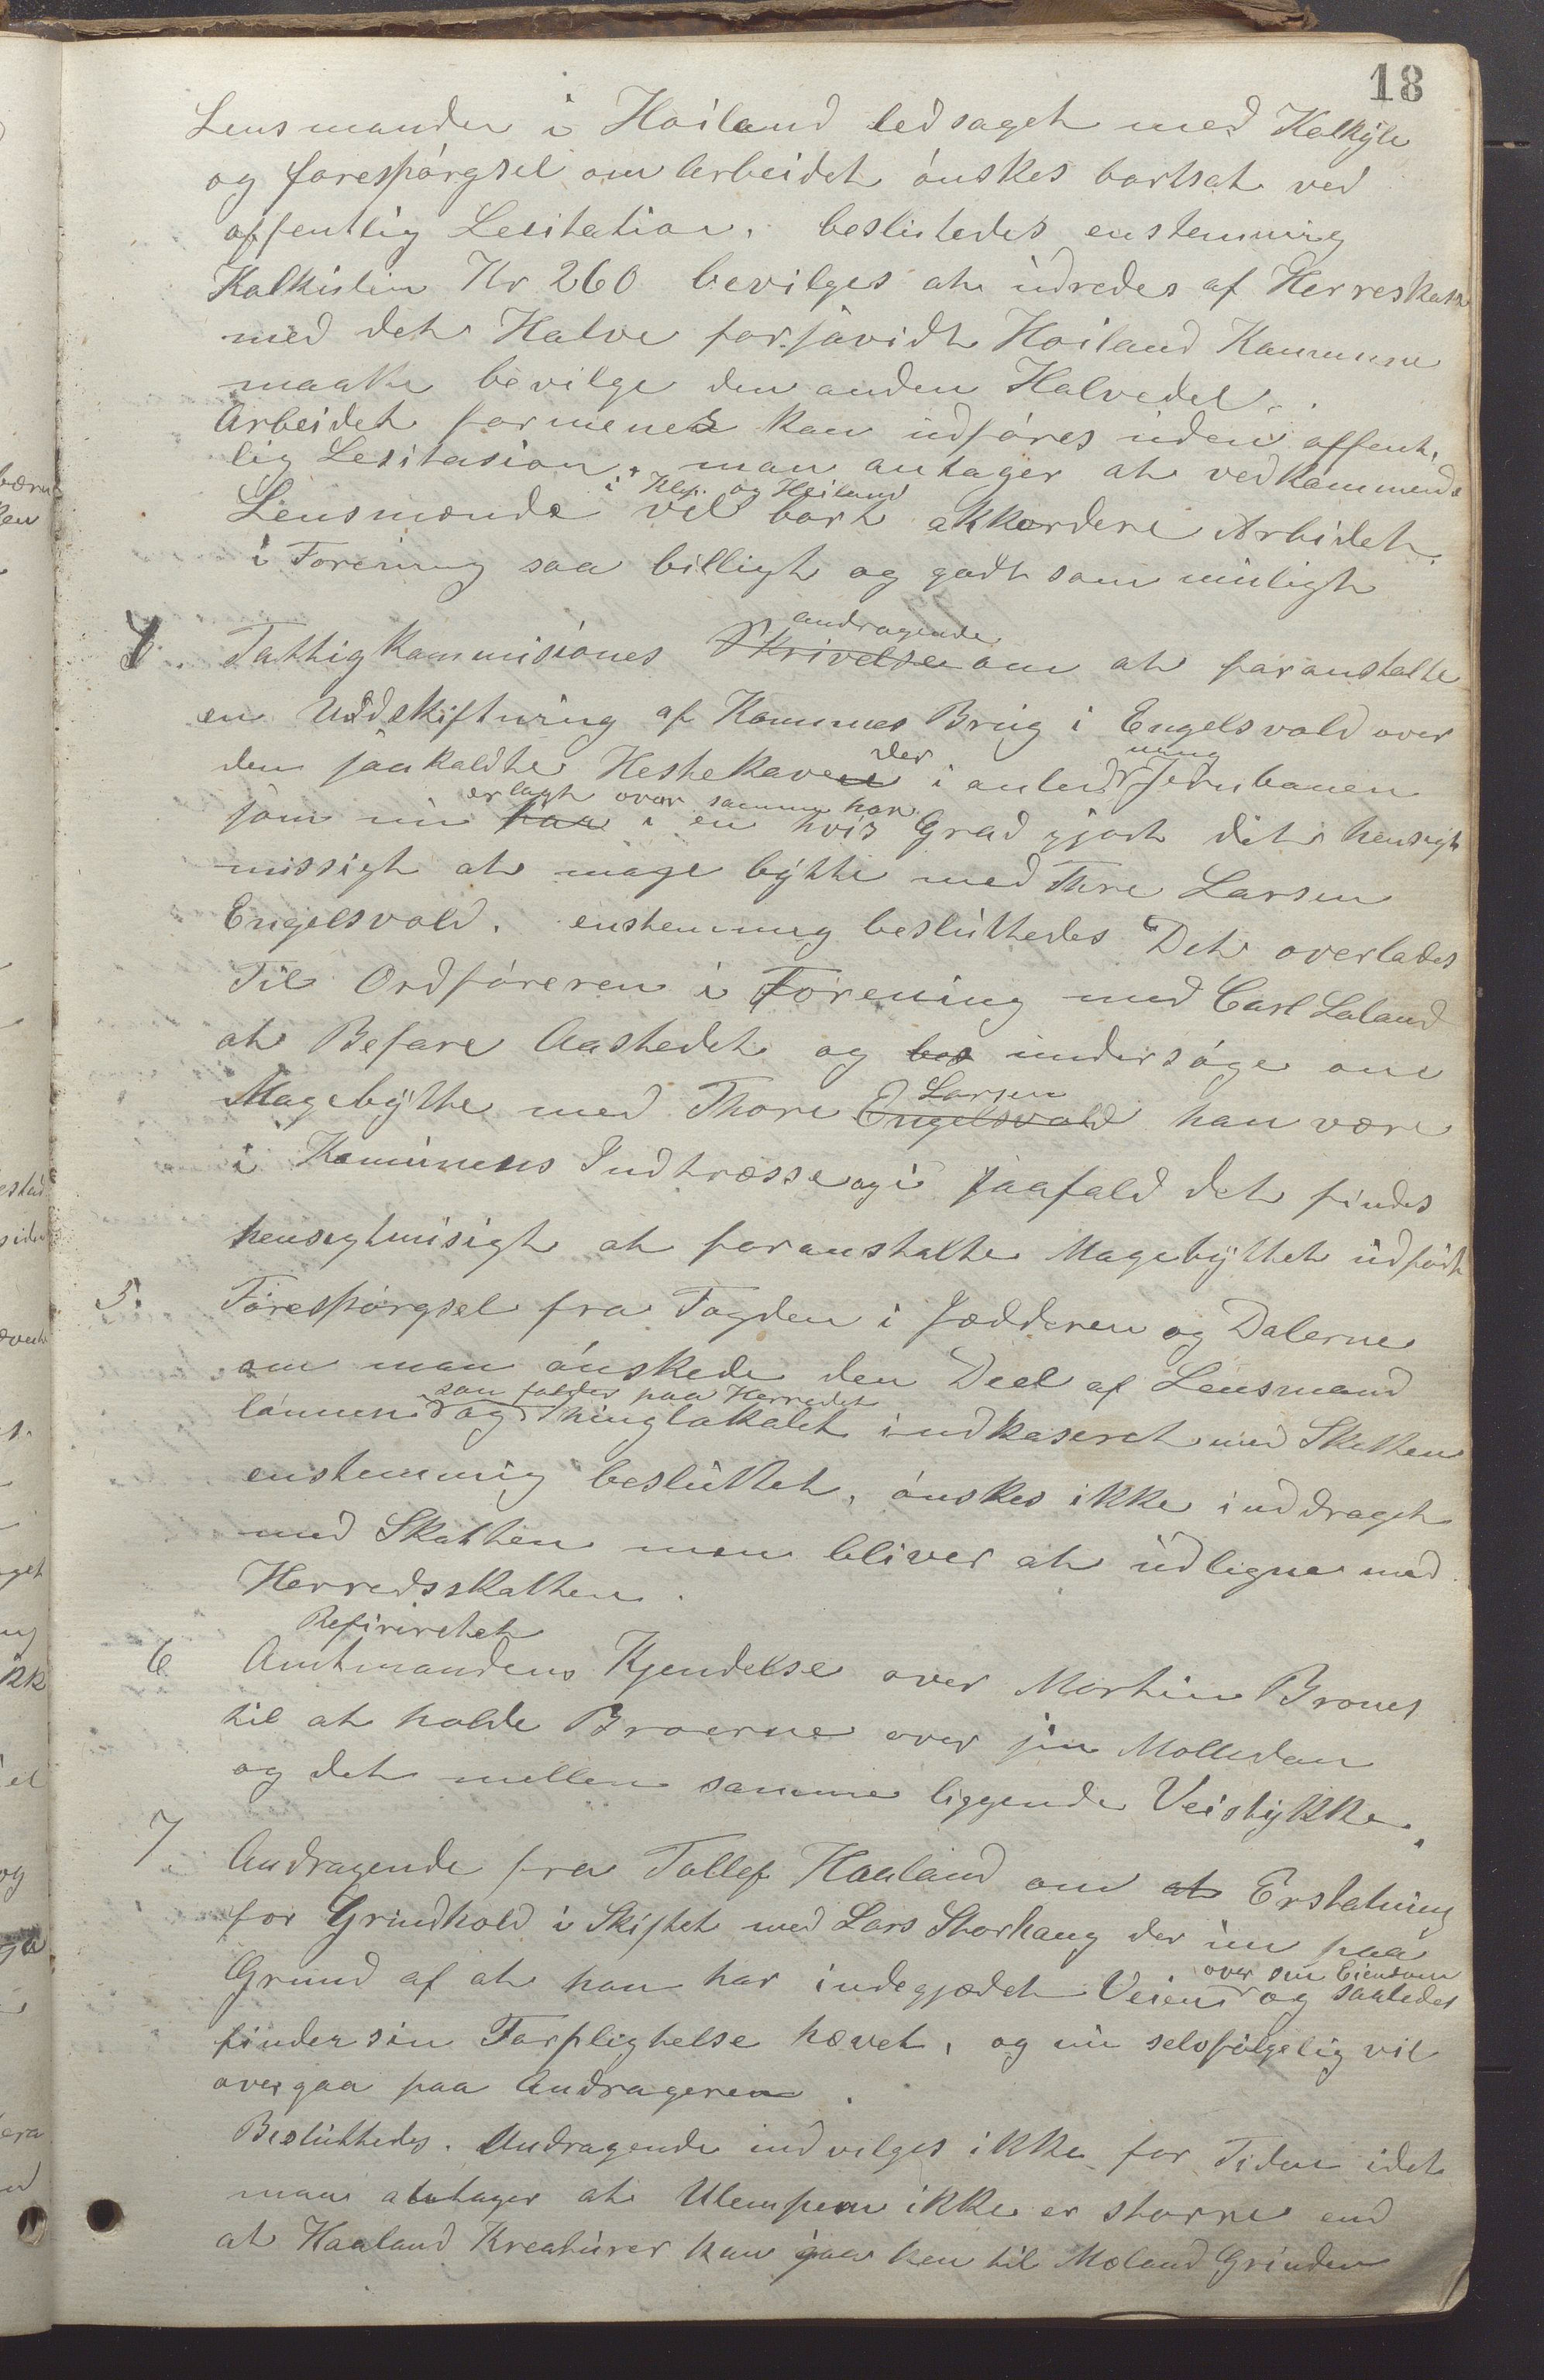 18
Lensmanden i Hoiland ledsaget med Kalkyle
og forespórgsel om Arbeidet ónskes bortsat ved
offentlig Lesitation. beslutedes enstemmig
Kalkulen Kr 260 bevilges at udredes af Herreskasn
med det Halve forsavidt Hoiland Kommune
maatte bevilge den anden Halvedel.
Arbeidet formenes kan udfóres uden offent.
lig Lesitasion. man antager at vedkommende
i Klp. og Hoiland
Lensmænde vil bort akkordere Arbidet
i Forening saa billigt og godt som muligt
4. Fattigkommisiones Skrivelse andragende om at foranstalte
en Uddskiftning af Kommes Brug i Engelsvold over
den saakaldte Hestehave der i anledning Jernbanen
som nu har erlagt over samme har i en hvis Grad gjort det hensigt
missigt at mage bytte med Thore Larsen
Engelsvold. enstemmig besluttedes Det overlades
Til Ordfóreren i Forening med Carl Laland
at Befare Aastedet og bes undersóge om
Magebytte med Thore Engelsvold Larsen kan være
i Komunens Indtræsse og i saafald det findes
hensigtmisigt at foranstalte Magebyttet udfórt
5. Fórespórgsel fra Fogden i Jædderen og Dalerne
om man ónskede den Deel af Lensmand
lónnen som falder paa Herredet og Thinglokalet indkaseret med Skatten
enstemmig besluttet, ónskes ikke inddraget
med Skatten men bliver at udligne med
Herredsskatten.
Refireretet
6 Amtmandens Kjendelse over Mortin Brones
til at holde Broerne over sin Molledam
og det mellem samme liggende Veistykke.
7 Andragende fra Tollef Haaland om at Erstatning
for Grindhold i Skiftet med Lars Storhaug der nu paa
Grund af at han har indegjædet Veien over sin Eiendom og saaledes
finder sin Forpligtelse hævet, og nu selvfólgelig vil
overgaa paa Andrageren.
Besluttedes. Andragende indvilges ikke for Tiden idet
man antager at Ulempen ikke er storre end
at Haaland Kreaturer kan gaa hen til Moland Grinden